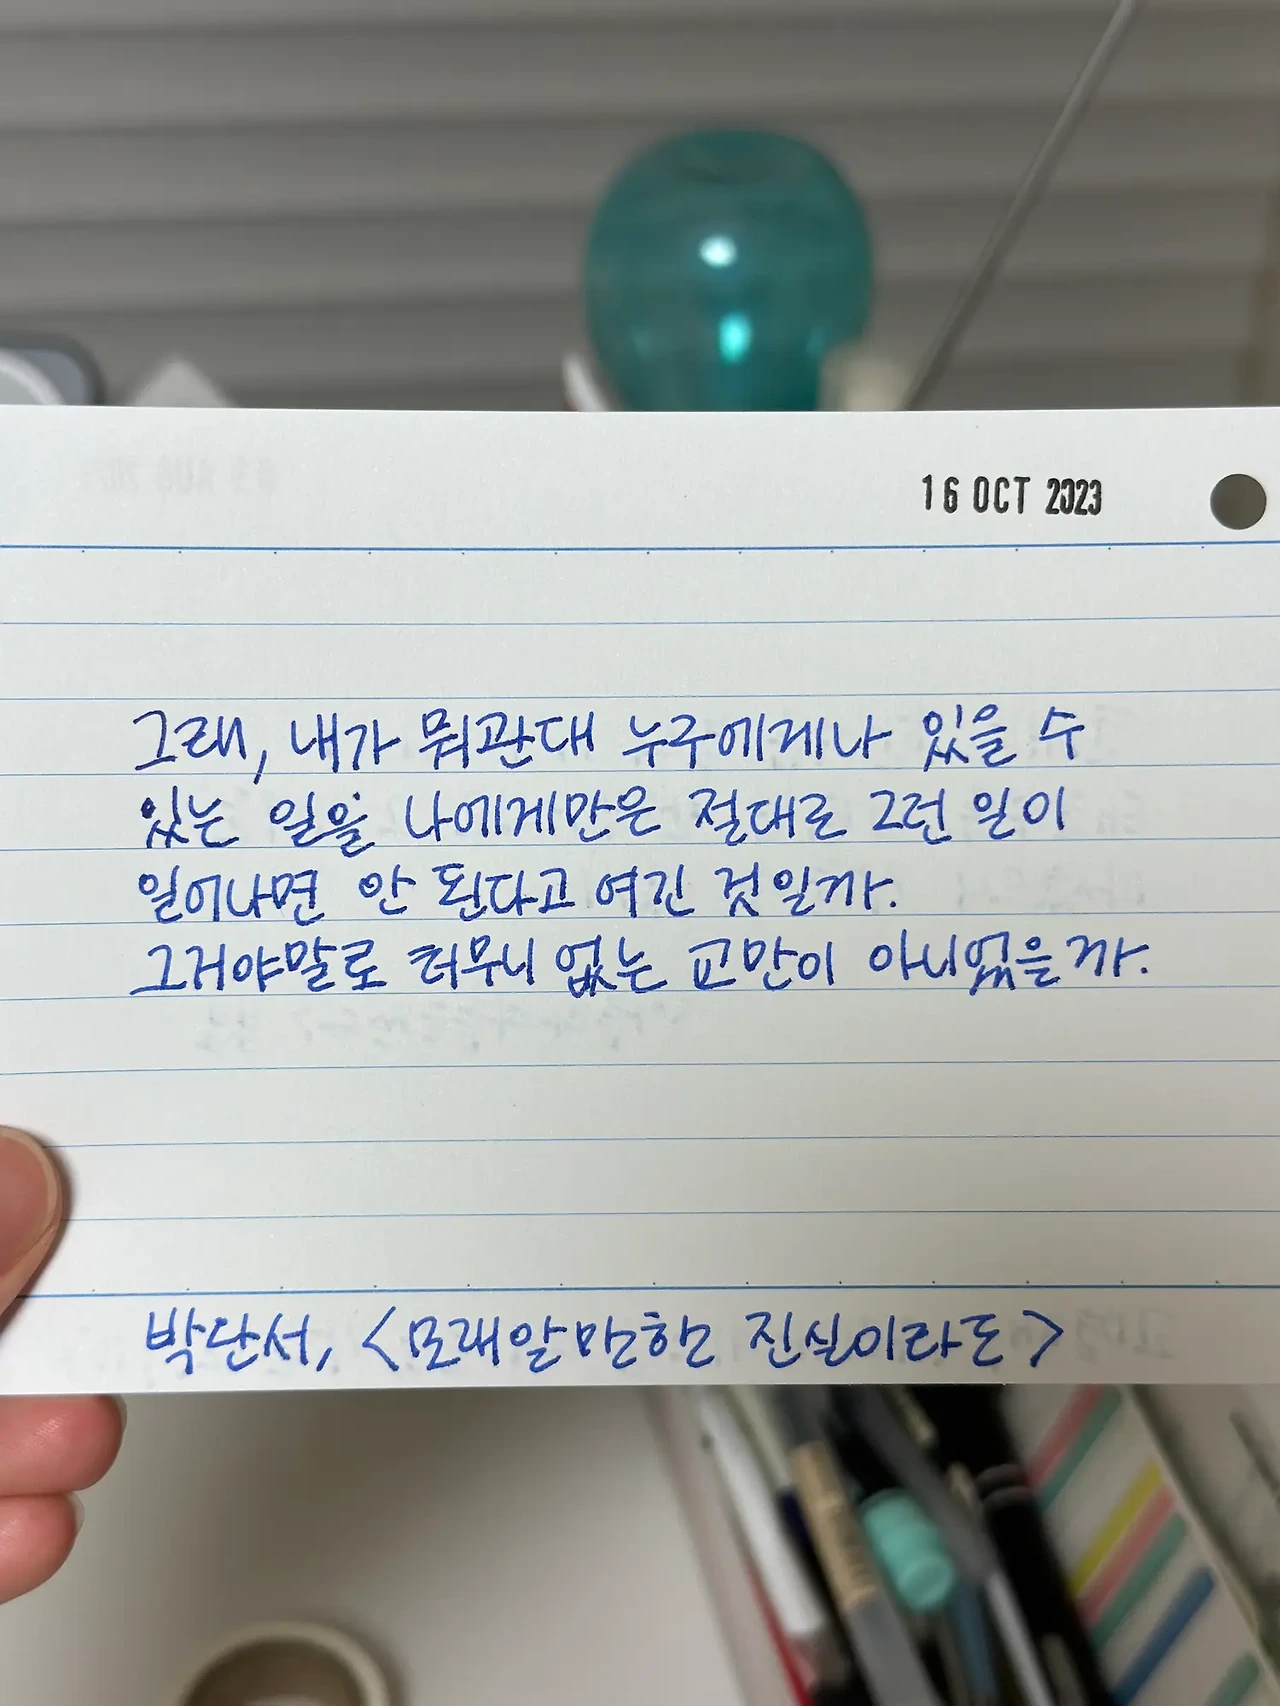 16 OCT 2023
그래, 내가 뭐관대 누구에게나 있을 수
있는 일을 나에게만은 절대로 그런 일이
일어나면 안 된다고 여긴 것일까.
그거야말로 터무니 없는 교만이 아니었을까.
박단서, <모래알만한 진실이라도>